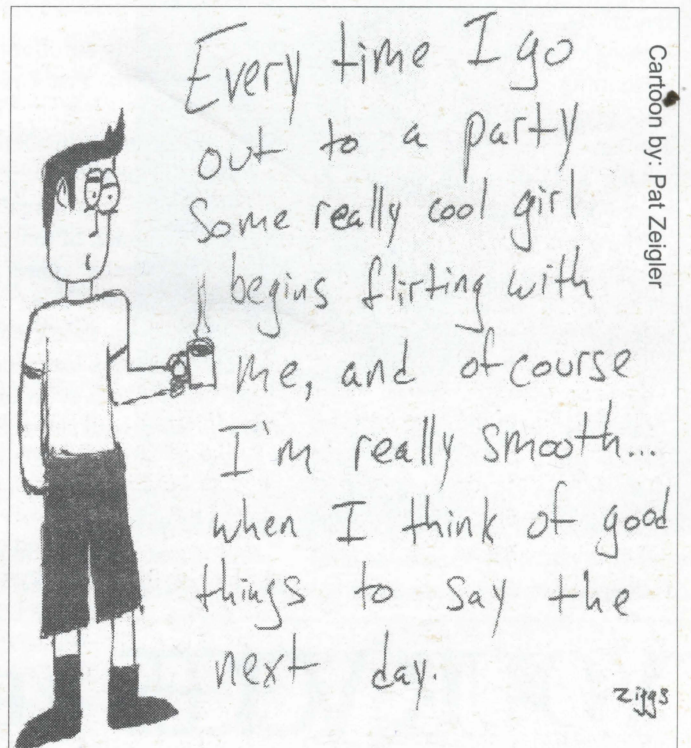 Every time I go
out to a party
some really cool girl
begins flirting with
me, and of course
I'm really smooth...
when I think of good
things to say the
next day.
ziggs
Cartoon by: Pat Zeigler